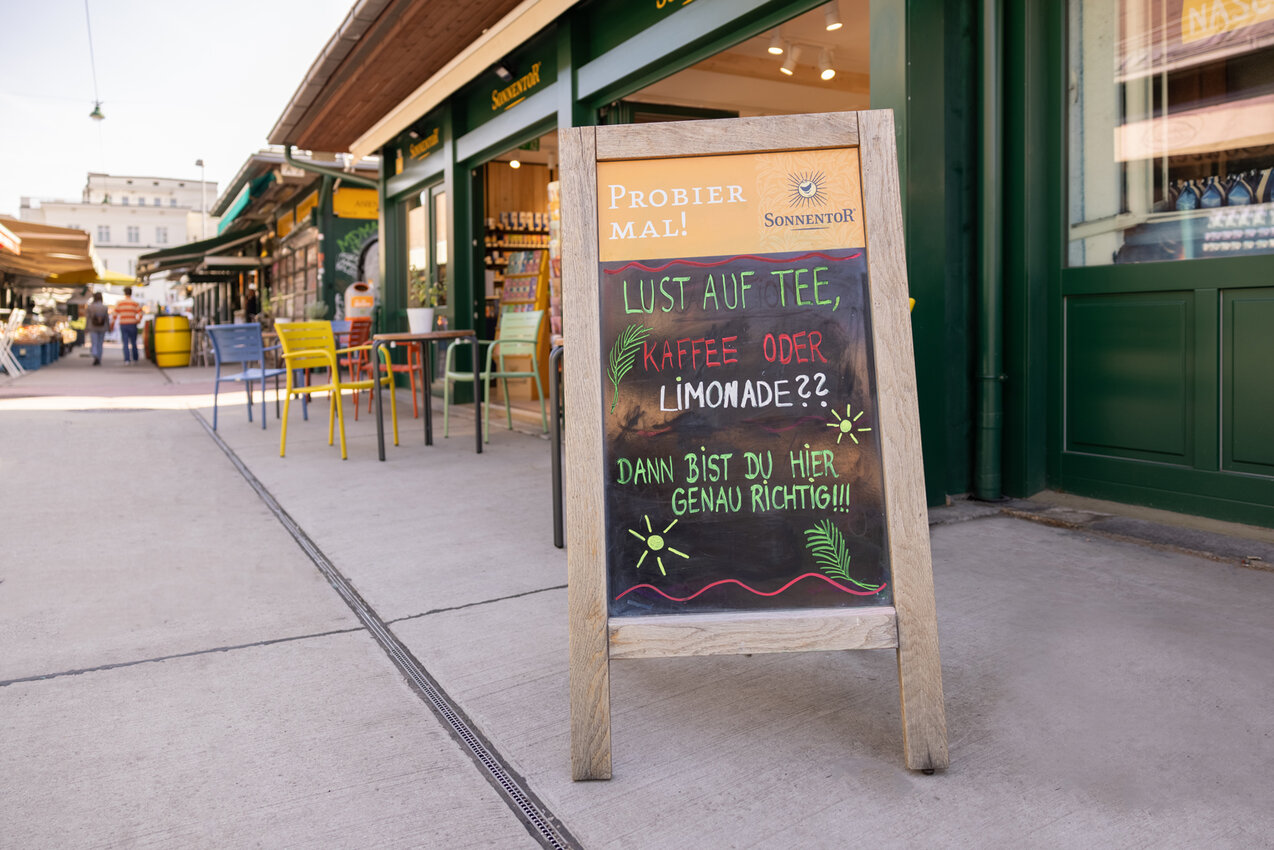 SONNENTOR
SONNENTOR
NASC
PROBIER
MAL!
SONNENTOR
LUST AUF TEE,
KAFFEE ODER
LIMONADE??
DANN BIST DU HIER
GENAU RICHTIG!!!